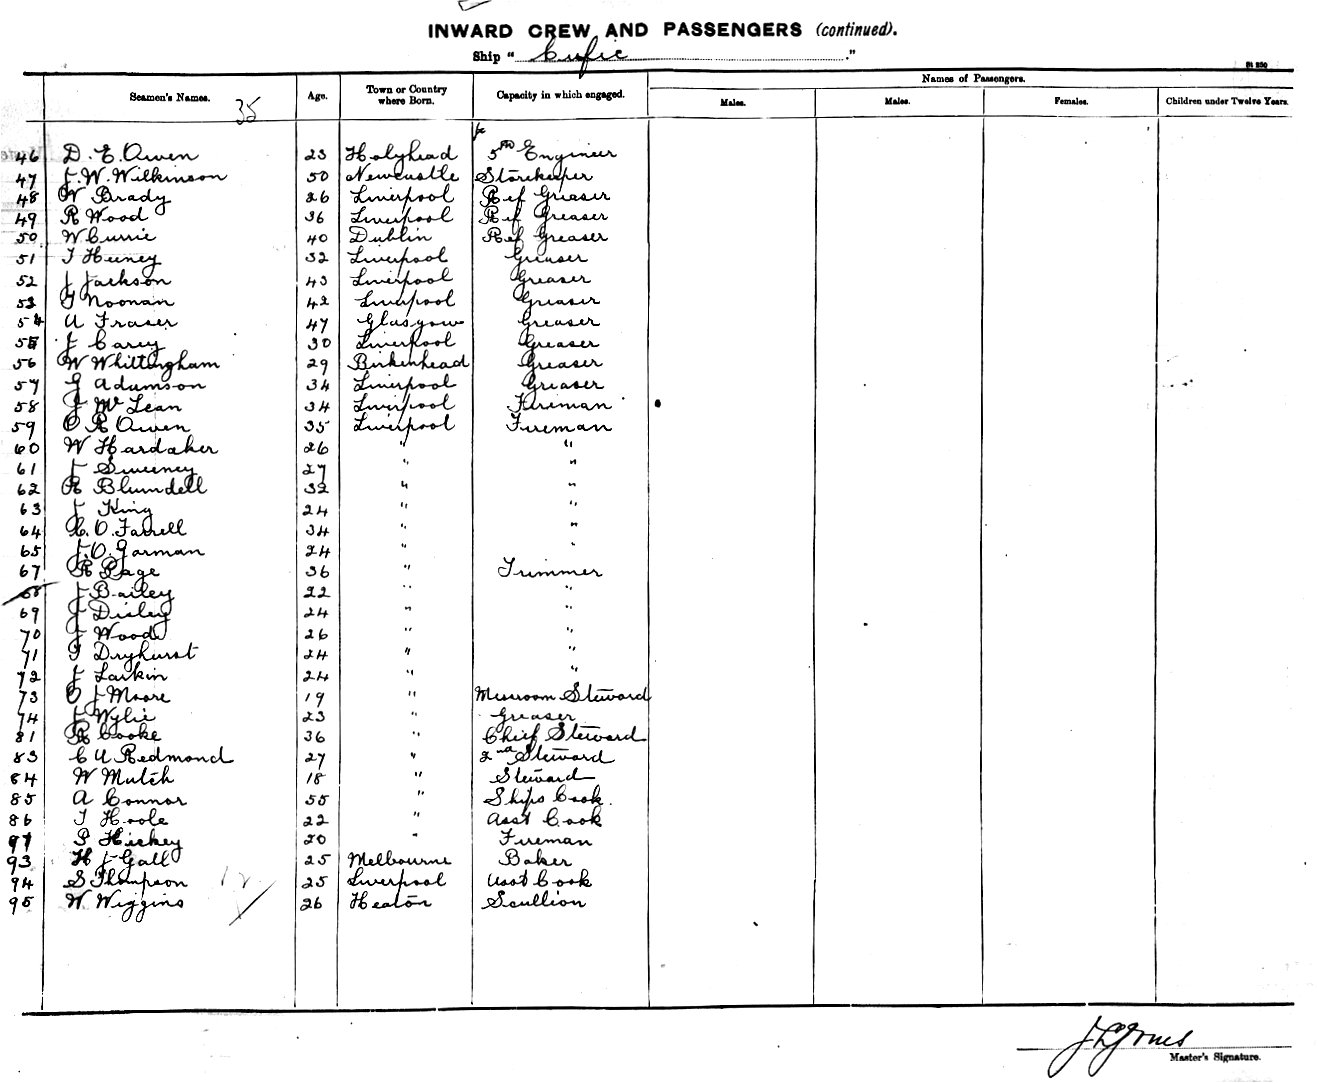 INWARD CREW AND PASSENGERS (continued).
Ship " Cufic "
Seamen's Names. Age. Town or Country where Born. Capacity in which engaged. Names of Passengers.
Males. Males. Females. Children under Twelve Years.
35
46 D. E. Owen 23 Holyhead 5th Engineer
47 J. W. Wilkinson 50 Newcastle Storekeeper
48 W Brady 26 Liverpool Ref Greaser
49 R Wood 36 Liverpool Ref Greaser
50 W Currie 40 Dublin Ref Greaser
51 T Heeney 32 Liverpool Greaser
52 J Jackson 43 Liverpool Greaser
53 Noonan 42 Liverpool Greaser
54 A Fraser 47 Glasgow Greaser
55 J Carey 30 Liverpool Greaser
56 W Whittingham 29 Birkenhead Greaser
57 G Adamson 34 Liverpool Greaser
58 J McLean 34 Liverpool Fireman
59 O R Owen 35 Liverpool Fireman
60 W Hardaker 26 " "
61 J Sweeney 27 " "
62 R Blundell 32 " "
63 J King 24 " "
64 C. O. Farrell 34 " "
65 J. O. Gorman 24 " "
67 R Page 36 " Trimmer
68 J Bailey 22 " "
69 J Disley 24 " "
70 J Wood 26 " "
71 T Dryhurst 24 " "
72 J Larkin 24 " "
73 O J Moore 19 " Messroom Steward
74 J Wylie 23 " Greaser
81 R Cooke 36 " Chief Steward
83 C A Redmond 27 " 2nd Steward
84 W Mutch 18 " Steward
85 A Connor 55 " Ships Cook.
86 T Hoole 22 " Asst Cook
97 P Hickey 20 " Fireman
93 H J Gall 25 Melbourne Baker
94 S Thompson 25 Liverpool Asst Cook
95 W Wiggins 26 Heaton Scullion
Master's Signature.